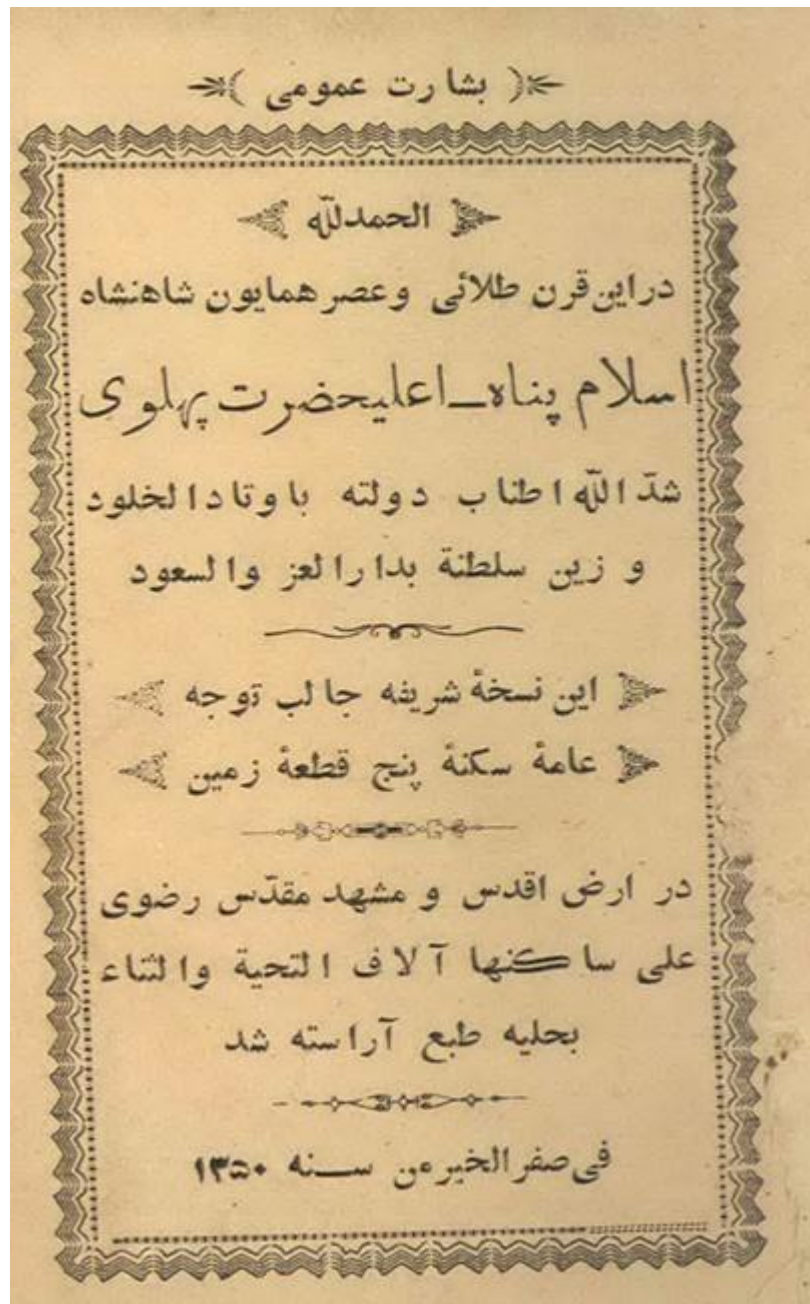 بشارت عمومی
الحمدلله
در این قرن طلائی و عصر همایون شاهنشاه
اسلام پناه ـ اعلیحضرت پهلوی
شدّ الله اطناب دولته باوتاد الخلود
و زین سلطنة بدار العز والسعود
این نسخهٔ شریفه جالب توجه
عامهٔ سکنهٔ پنج قطعهٔ زمین
در ارض اقدس و مشهد مقدّس رضوی
علی ساکنها آلاف التحیة والثناء
بحلیه طبع آراسته شد
فی صفر الخیر من سنه ۱۳۵۰